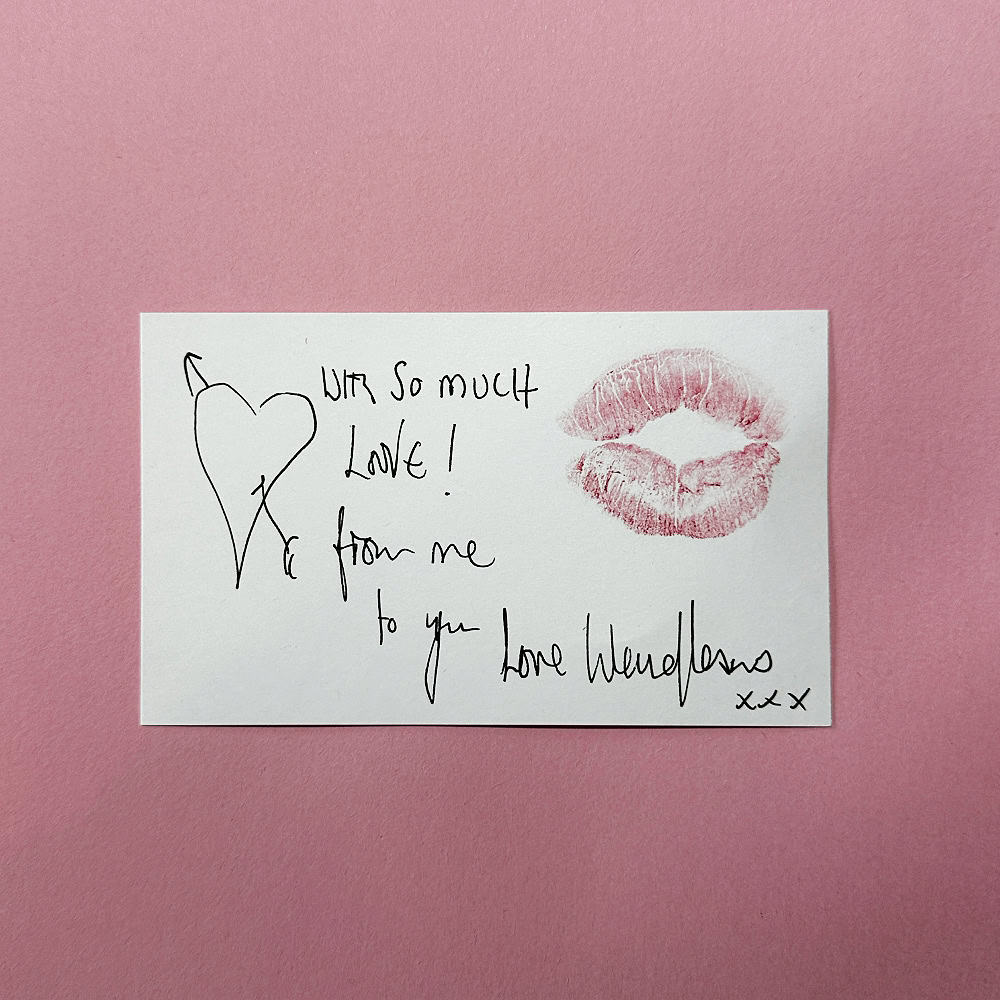 WITH SO MUCH
LOVE!
from me
to you
Love
xxx